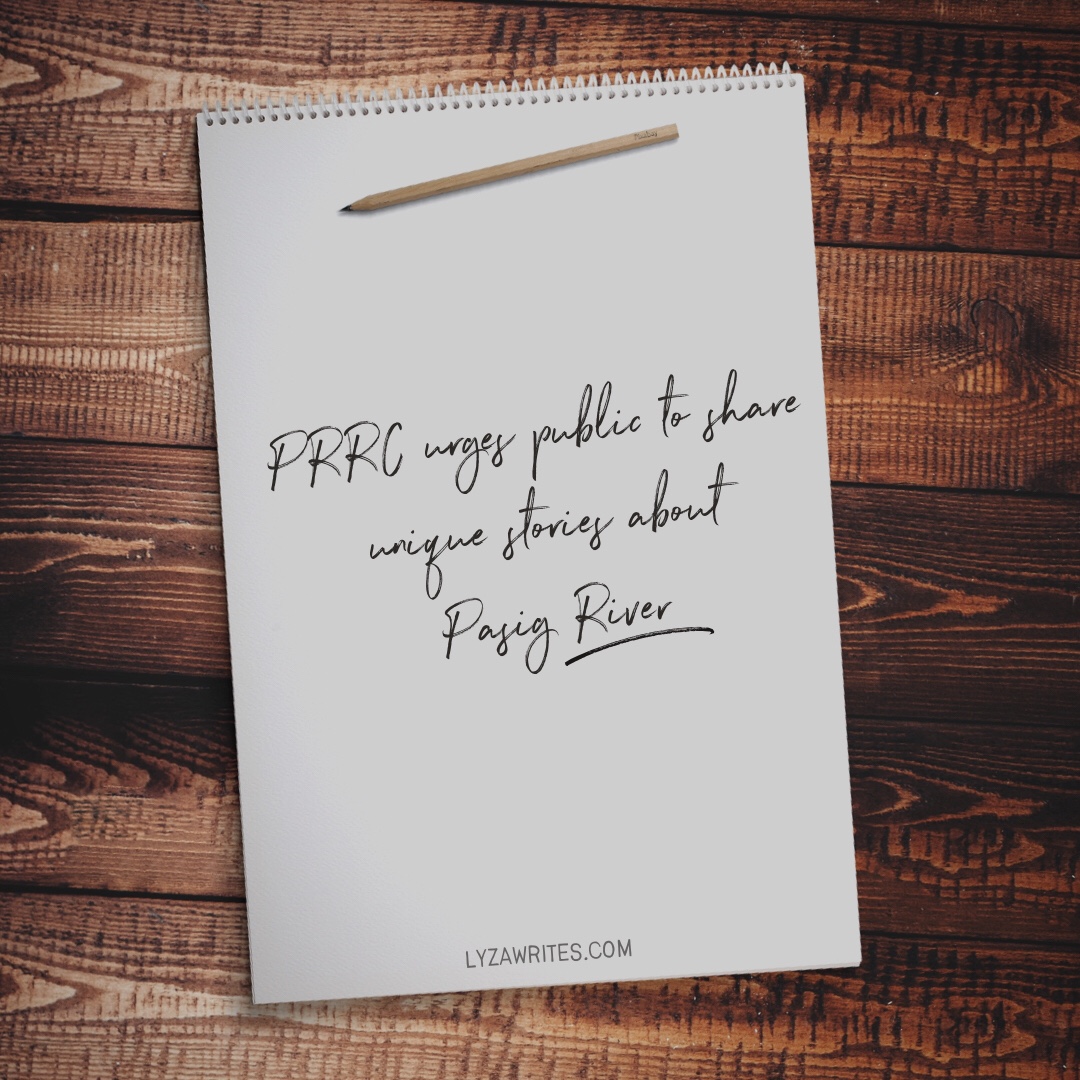 PRRC urges public to share
unique stories about
Pasig River
LYZAWRITES.COM